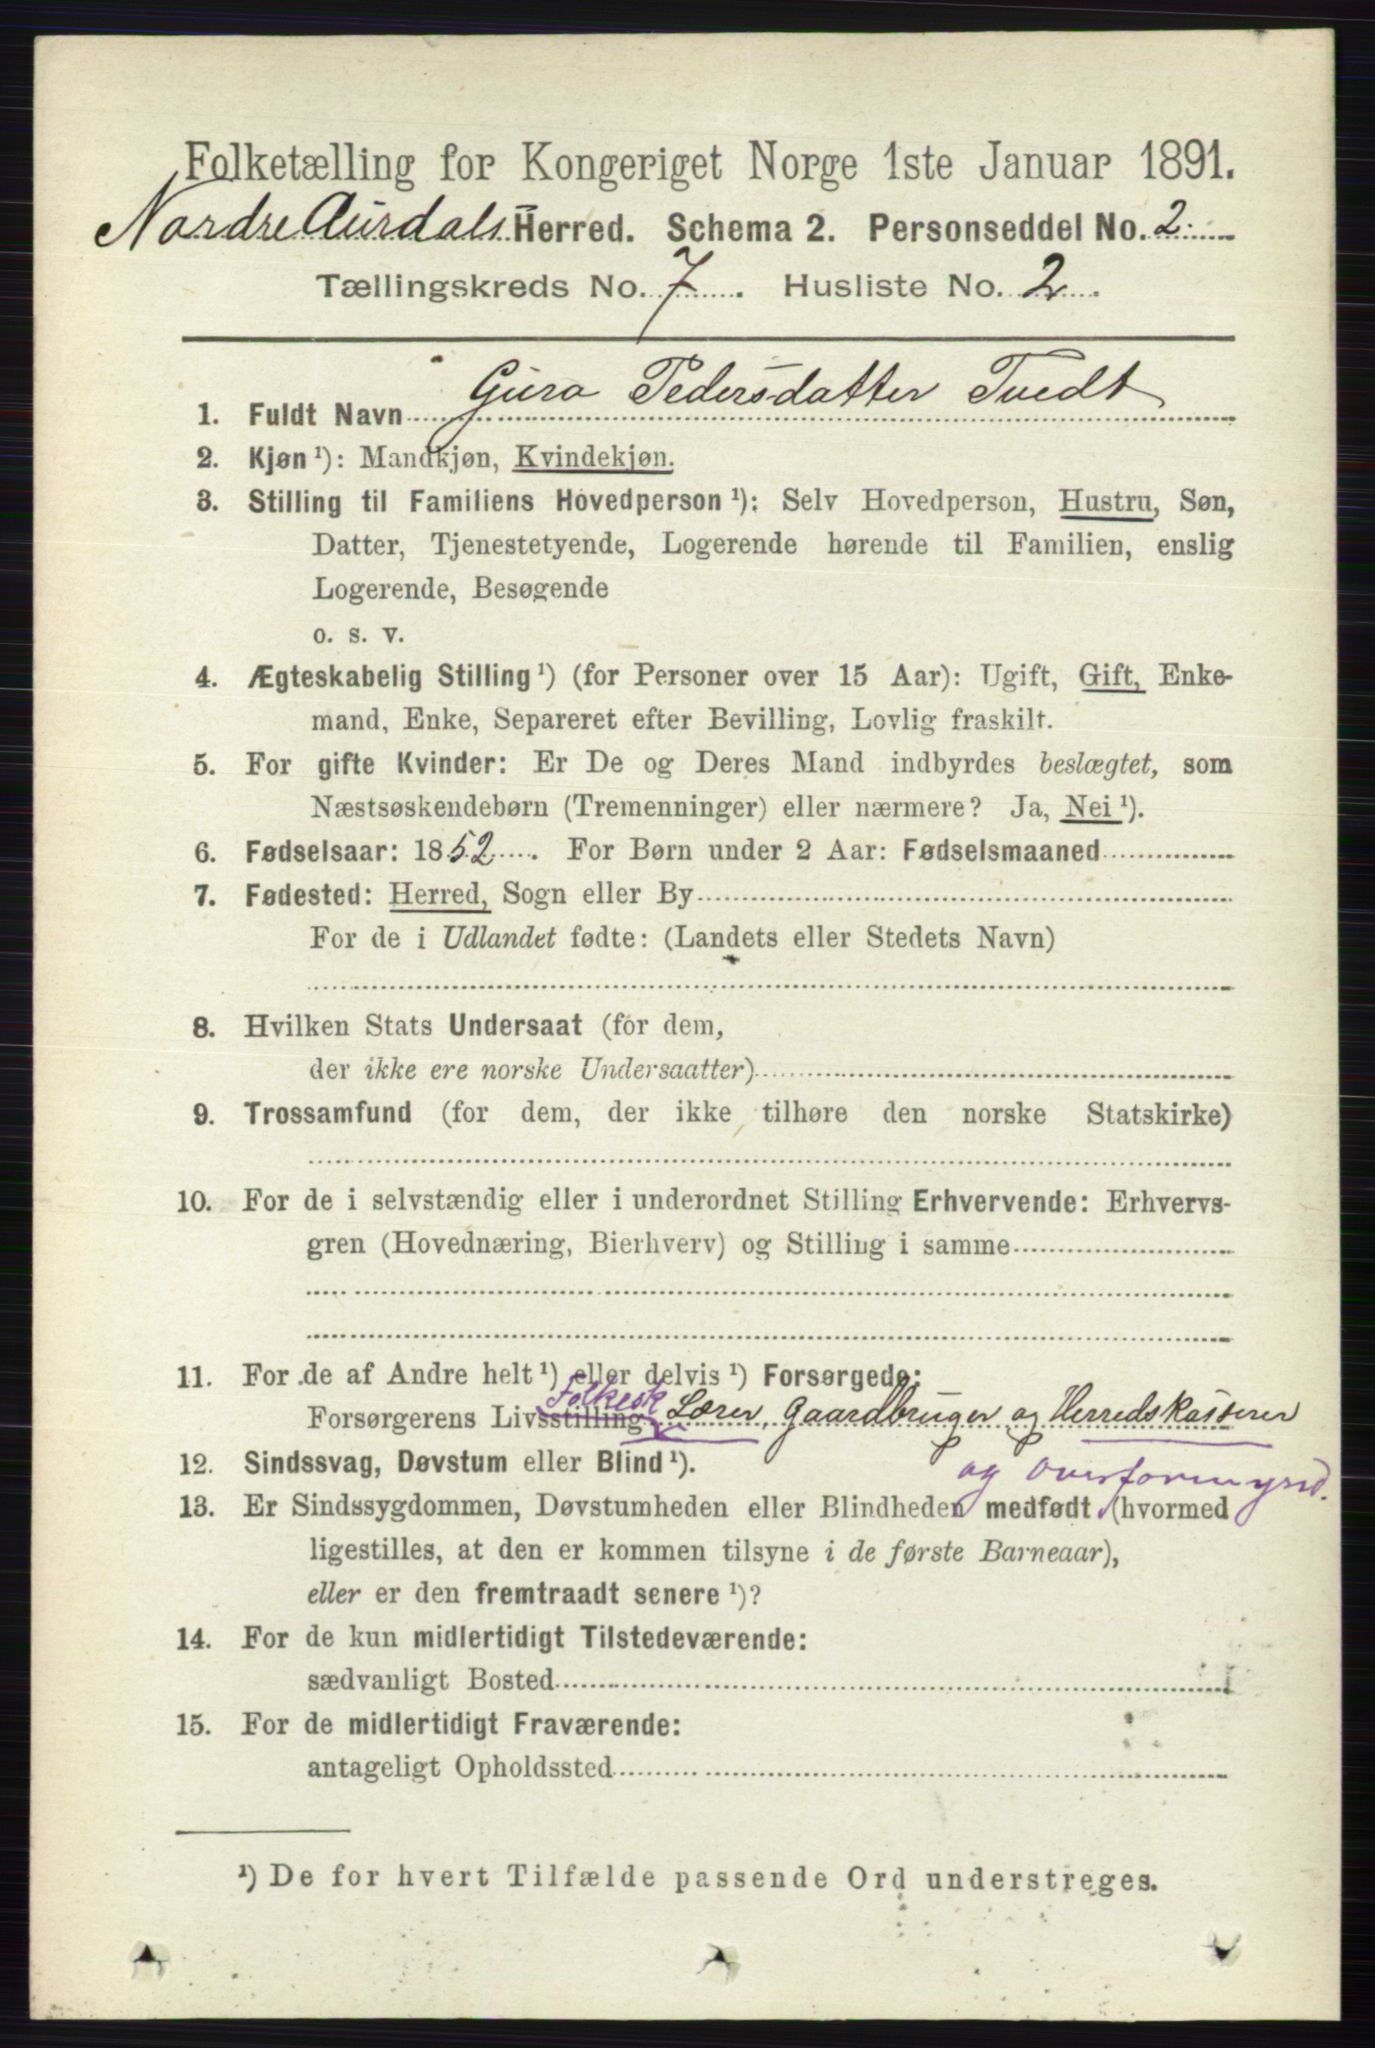 Folketælling for Kongeriget Norge 1ste Januar 1891.
Nordre Aurdals Herred. Schema 2. Personseddel No. 2.
Tællingskreds No. 7. Husliste No. 2.
1. Fuldt Navn Guro Pedersdatter Tvedt
2. Kjøn ¹): Mandkjøn, Kvindekjøn.
3. Stilling til Familiens Hovedperson ¹): Selv Hovedperson, Hustru, Søn,
Datter, Tjenestetyende, Logerende hørende til Familien, enslig
Logerende, Besøgende
o. s. v.
4. Ægteskabelig Stilling ¹) (for Personer over 15 Aar): Ugift, Gift, Enke-
mand, Enke, Separeret efter Bevilling, Lovlig fraskilt.
5. For gifte Kvinder: Er De og Deres Mand indbyrdes beslægtet, som
Næstsøskendebørn (Tremenninger) eller nærmere? Ja, Nei ¹).
6. Fødselsaar: 1852. For Børn under 2 Aar: Fødselsmaaned
7. Fødested: Herred, Sogn eller By
For de i Udlandet fødte: (Landets eller Stedets Navn)
8. Hvilken Stats Undersaat (for dem,
der ikke ere norske Undersaatter)
9. Trossamfund (for dem, der ikke tilhøre den norske Statskirke)
10. For de i selvstændig eller i underordnet Stilling Erhvervende: Erhvervs-
gren (Hovednæring, Bierhverv) og Stilling i samme
11. For de af Andre helt ¹) eller delvis ¹) Forsørgede:
Folkesk
Forsørgerens Livsstilling Lærer, Gaardbruger og Herredskasserer
12. Sindssvag, Døvstum eller Blind ¹).
og Overformynd.
13. Er Sindssygdommen, Døvstumheden eller Blindheden medfødt (hvormed
ligestilles, at den er kommen tilsyne i de første Barneaar),
eller er den fremtraadt senere ¹)?
14. For de kun midlertidigt Tilstedeværende:
sædvanligt Bosted
15. For de midlertidigt Fraværende:
antageligt Opholdssted
¹) De for hvert Tilfælde passende Ord understreges.